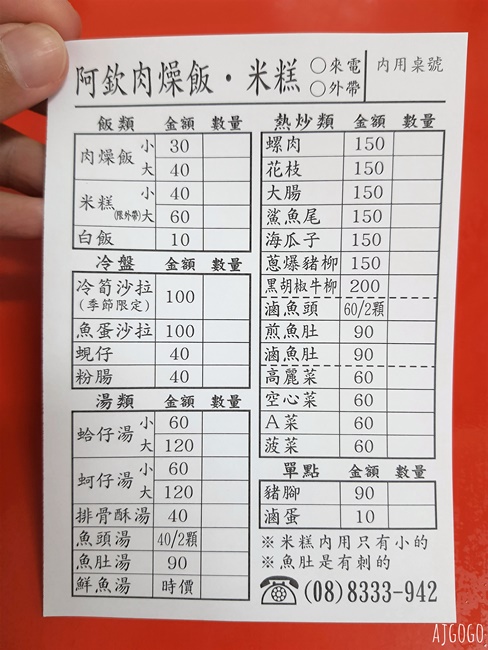 阿欽肉燥飯・米糕 ○來電 ○外帶 內用桌號
飯類 金額 數量
肉燥飯 小 30
大 40
米糕 小 40
(限外帶)大 60
白飯 10
冷盤 金額 數量
冷筍沙拉 (季節限定) 100
魚蛋沙拉 100
蜆仔 40
粉腸 40
湯類 金額 數量
蛤仔湯 小 60
大 120
蚵仔湯 小 60
大 120
排骨酥湯 40
魚頭湯 40/2顆
魚肚湯 90
鮮魚湯 時價
熱炒類 金額 數量
螺肉 150
花枝 150
大腸 150
鯊魚尾 150
海瓜子 150
蔥爆豬柳 150
黑胡椒牛柳 200
滷魚頭 60/2顆
煎魚肚 90
滷魚肚 90
高麗菜 60
空心菜 60
A菜 60
菠菜 60
單點 金額 數量
豬腳 90
滷蛋 10
※米糕內用只有小的
※魚肚是有刺的
☎(08)8333-942
AJGOGO